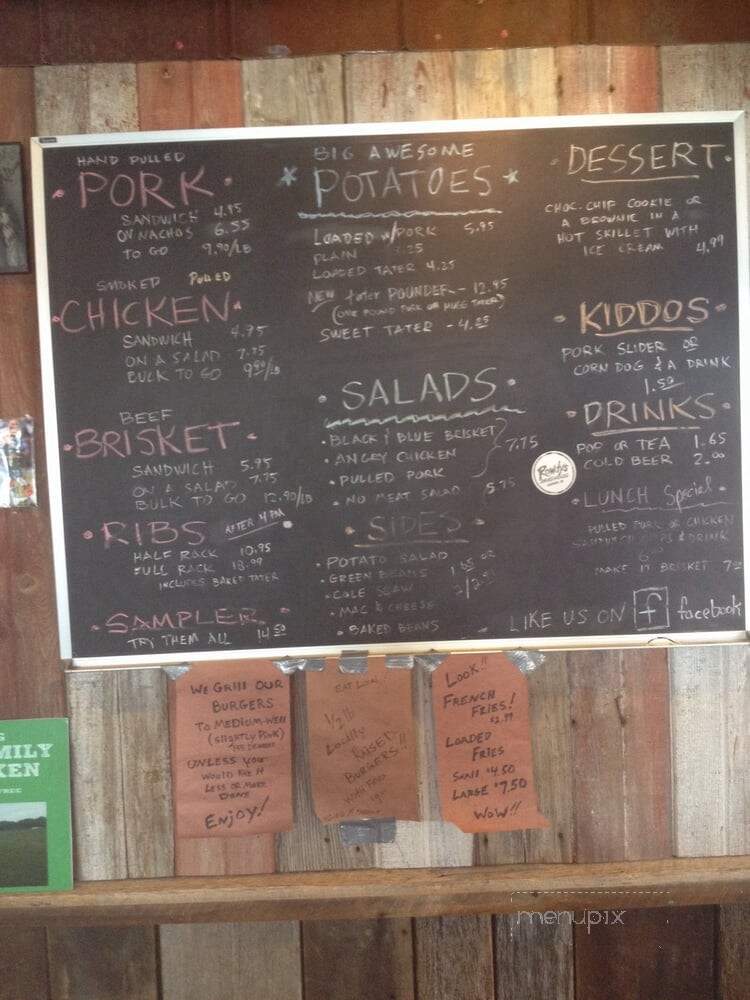 HAND PULLED
PORK
SANDWICH 4.95
ON NACHOS 6.55
TO GO 9.90/LB
SMOKED PULLED
CHICKEN
SANDWICH 4.95
ON A SALAD 7.75
BULK TO GO 9.90/LB
BEEF
BRISKET
SANDWICH 5.95
ON A SALAD 7.75
BULK TO GO 12.90/LB
RIBS AFTER 4 PM
HALF RACK 10.95
FULL RACK 18.99
INCLUDES BAKED TATER
SAMPLER
TRY THEM ALL 14.50
BIG AWESOME
POTATOES
LOADED W/PORK 5.95
PLAIN .25
LOADED TATER 4.25
NEW tater POUNDER - 12.95
(ONE POUND PORK OR HUGE TATER)
SWEET TATER - 4.25
SALADS
BLACK & BLUE BRISKET
ANGRY CHICKEN 7.75
PULLED PORK
NO MEAT SALAD 5.75
SIDES
POTATO SALAD
GREEN BEANS 1.65 OR
COLE SLAW 2/2
MAC & CHEESE
BAKED BEANS
DESSERT
CHOC-CHIP COOKIE OR
A BROWNIE IN A
HOT SKILLET WITH
ICE CREAM 4.99
KIDDOS
PORK SLIDER OR
CORN DOG & A DRINK
1.50
DRINKS
POP OR TEA 1.65
COLD BEER 2.00
Rowdy's
LUNCH Special
PULLED PORK OR CHICKEN
SANDWICH CHIPS & DRINK
6
MAKE IT BRISKET 7
LIKE US ON f facebook
WE GRILL OUR
BURGERS
TO MEDIUM-WELL
(SLIGHTLY PINK)
UNLESS YOU
WOULD LIKE IT
LESS OR MORE
DONE
ENJOY!
EAT LOCAL
1/2 lb
LOCALLY
RAISED
BURGERS!!
LOOK!!
FRENCH
FRIES!
$2.99
LOADED
FRIES
SMALL $4.50
LARGE $7.50
WOW!!
MILY
KEN
menupix